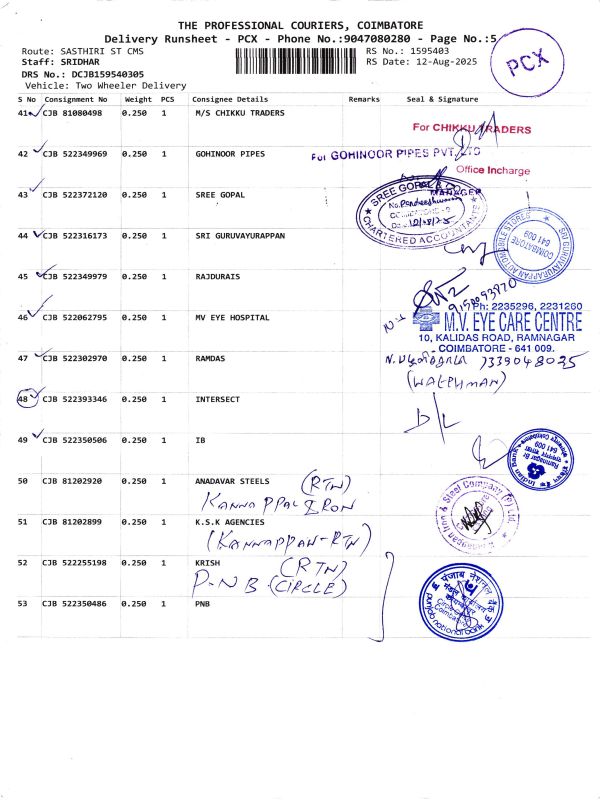 THE PROFESSIONAL COURIERS, COIMBATORE
Delivery Runsheet - PCX - Phone No.:9047080280 - Page No.:5
Route: SASTHIRI ST CMS
RS No.: 1595403
Staff: SRIDHAR
RS Date: 12-Aug-2025
PCX
DRS No.: DCJB159540305
Vehicle: Two Wheeler Delivery
S No Consignment No Weight PCS Consignee Details Remarks Seal & Signature
41 CJB 81080498 0.250 1 M/S CHIKKU TRADERS
For CHIKKU TRADERS
42 CJB 522349969 0.250 1 GOHINOOR PIPES
For GOHINOOR PIPES PVT. LTD
Office Incharge
MANAGER
43 CJB 522372120 0.250 1 SREE GOPAL
SREE GOPAL & CO
12/08/25
CHARTERED ACCOUNTANTS
44 CJB 522316173 0.250 1 SRI GURUVAYURAPPAN
SRI GURUVAYURAPPAN AUTOMOBILE STORES
COIMBATORE
641 009
45 CJB 522349979 0.250 1 RAJDURAIS
46 CJB 522062795 0.250 1 MV EYE HOSPITAL
Ph: 2235296, 2231260
M.V. EYE CARE CENTRE
10, KALIDAS ROAD, RAMNAGAR
COIMBATORE - 641 009.
47 CJB 522302970 0.250 1 RAMDAS
7339048035
(WATCHMAN)
48 CJB 522393346 0.250 1 INTERSECT
D/L
49 CJB 522350506 0.250 1 IB
Indian Bank
641 009
50 CJB 81202920 0.250 1 ANADAVAR STEELS
(RTN)
KANNAPPAL IRON
51 CJB 81202899 0.250 1 K.S.K AGENCIES
(KANNAPPAN-RTN)
Kannappan Iron & Steel Company (P) Ltd.
52 CJB 522255198 0.250 1 KRISH
(RTN)
P-NB (CIRCLE)
53 CJB 522350486 0.250 1 PNB
पंजाब नेशनल बैंक
punjab national bank